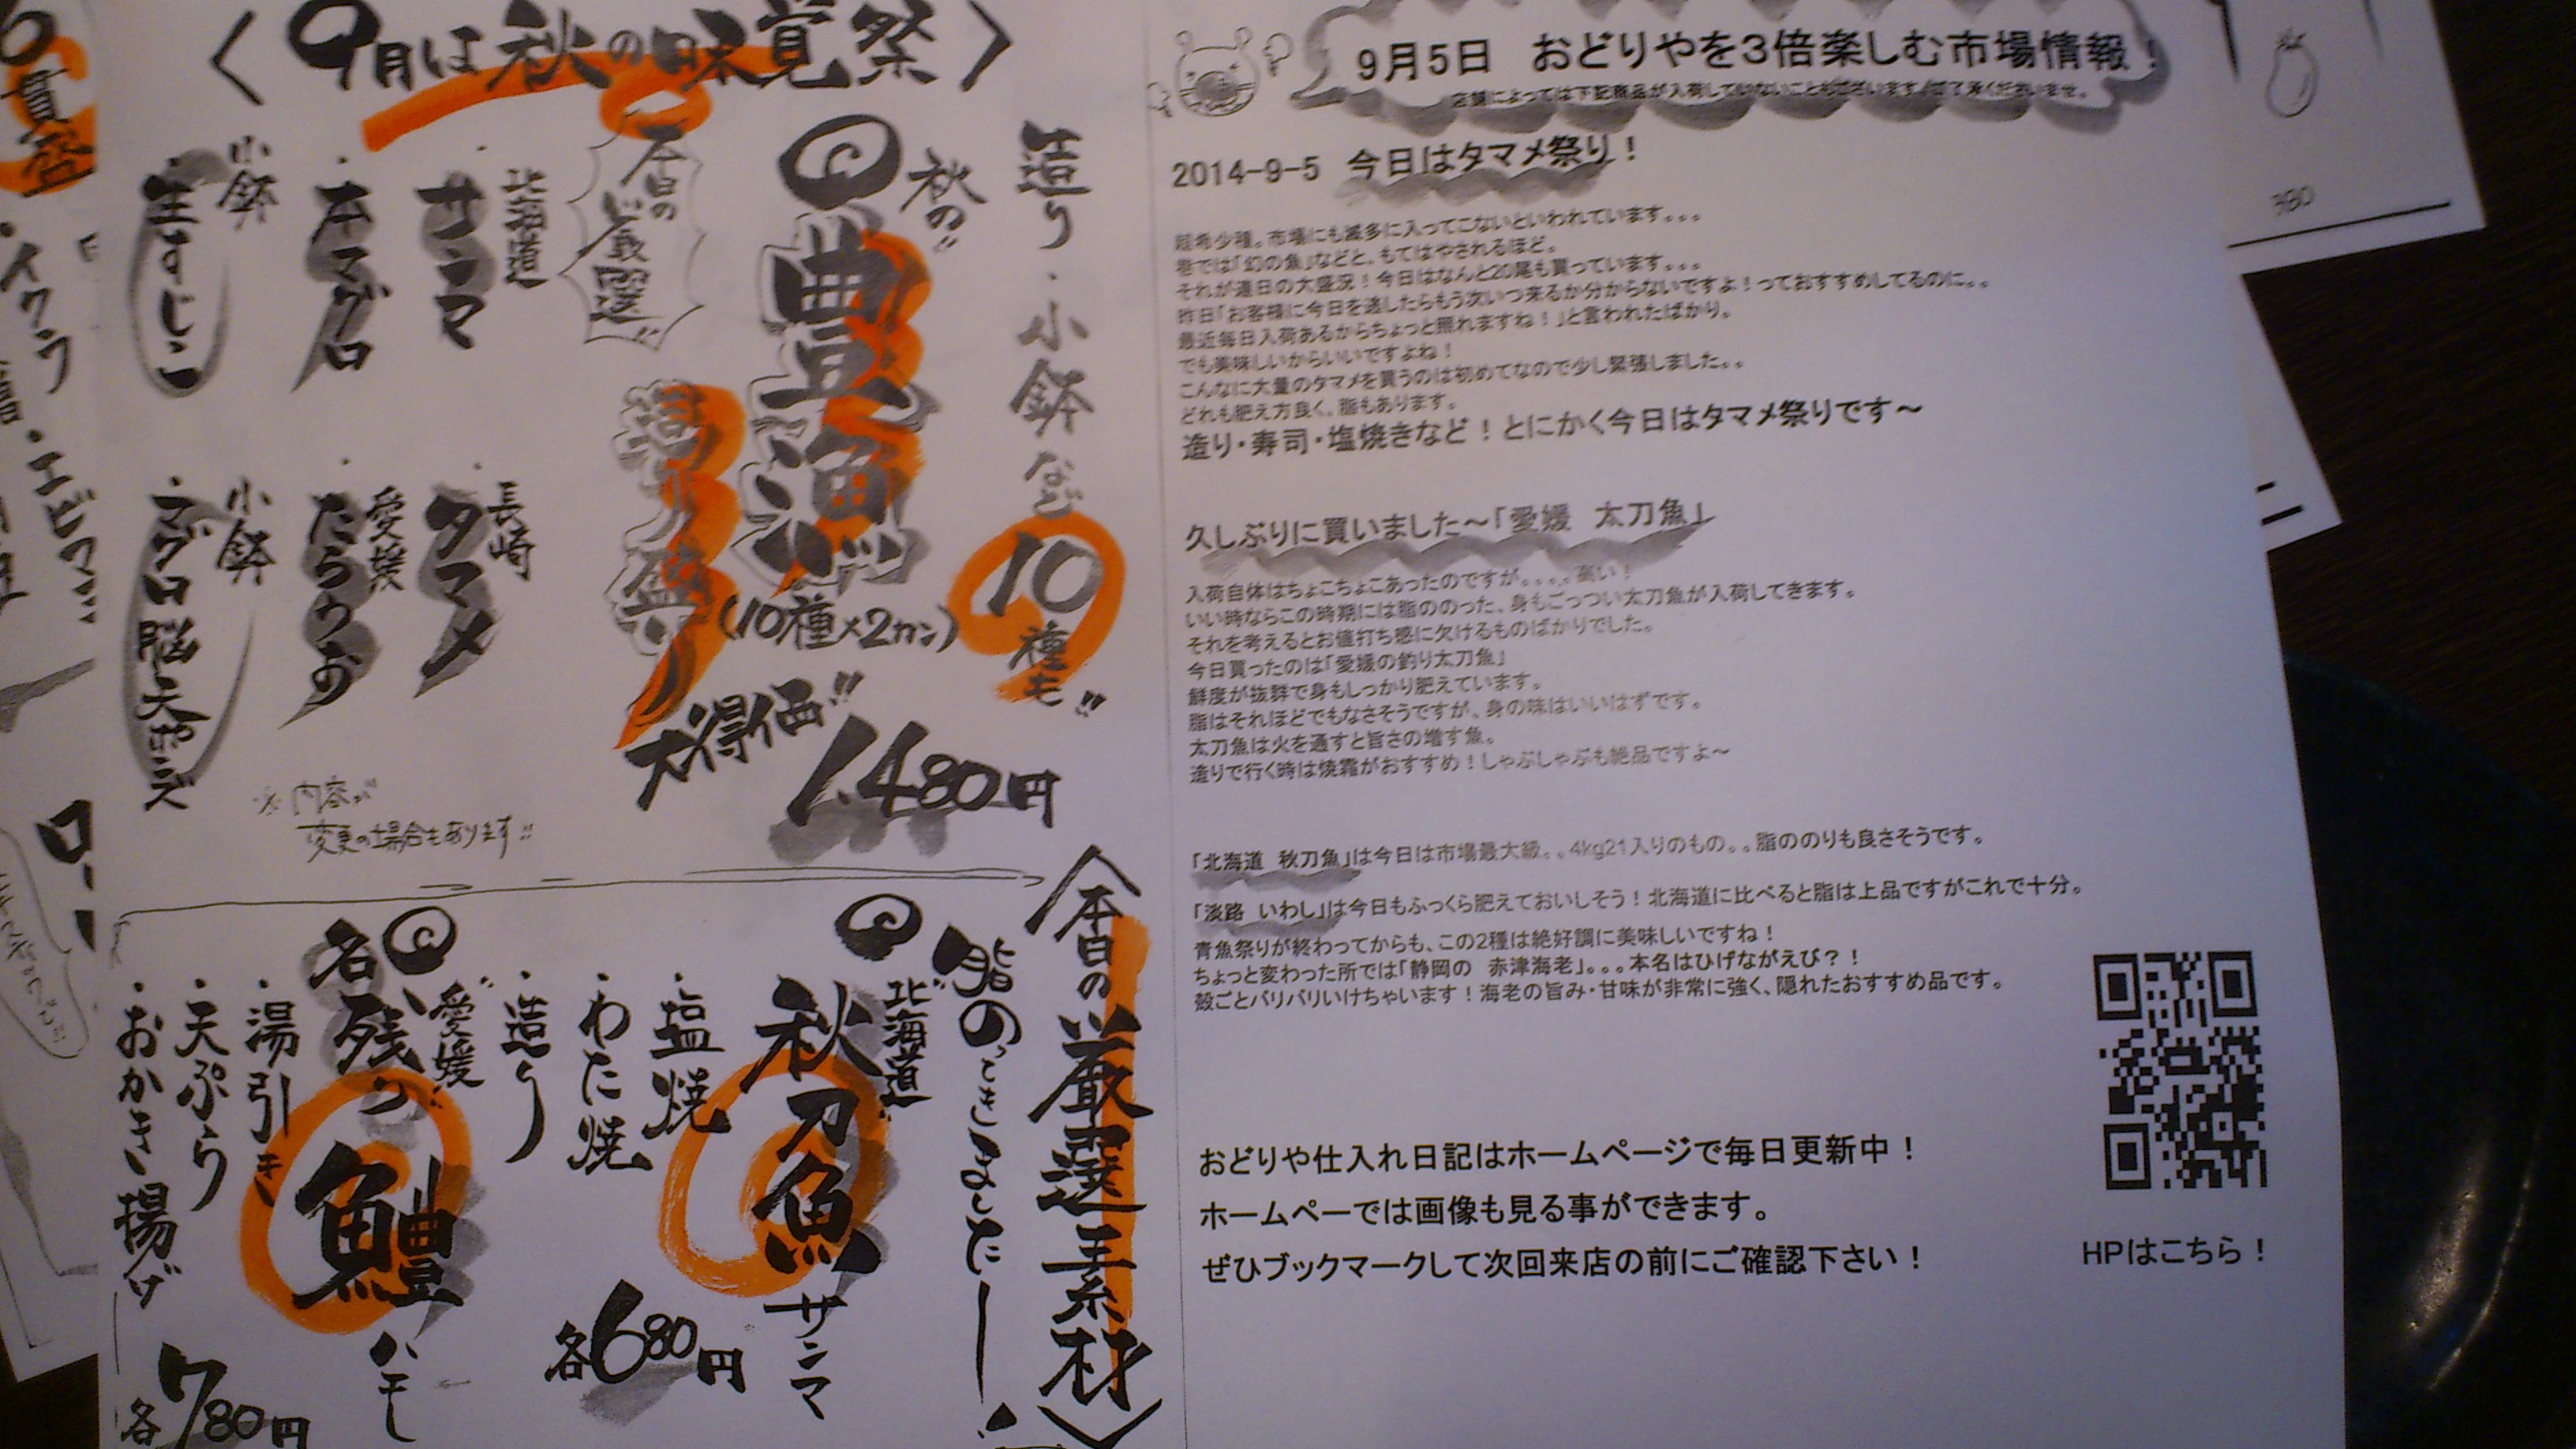 〈9月は秋の味覚祭〉
造り・小鉢など10種も!!
秋の!!
豊漁
造り盛り
(10種×2カン)
大得価!!
1,480円
本日のど厳選!!
北海道
・サンマ
・本マグロ
小鉢
・生すじこ
長崎
・タマメ
愛媛
・たちうお
小鉢
・マグロ脳天ポンズ
※内容が
変更の場合もあります!!
〈本日の厳選素材〉
脂のってきましたー!
北海道
秋刀魚
サンマ
・塩焼
・わた焼
・造り
各680円
愛媛
名残の
鱧
ハモし
・湯引き
・天ぷら
・おかき揚げ
各780円
9月5日 おどりやを3倍楽しむ市場情報!
店舗によっては下記商品が入荷していないこともございます。ご了承くださいませ。
2014-9-5 今日はタマメ祭り!
超希少種。市場にも滅多に入ってこないといわれています。。。
巷では「幻の魚」などと、もてはやされるほど。
それが連日の大盛況!今日はなんと20尾も買っています。。。
昨日「お客様に今日を逃したらもう次いつ来るか分からないですよ!っておすすめしてるのに。。
最近毎日入荷あるからちょっと照れますね!」と言われたばかり。
でも美味しいからいいですよね!
こんなに大量のタマメを買うのは初めてなので少し緊張しました。。
どれも肥え方良く、脂もあります。
造り・寿司・塩焼きなど!とにかく今日はタマメ祭りです～
久しぶりに買いました～「愛媛 太刀魚」
入荷自体はちょこちょこあったのですが。。。。高い!
いい時ならこの時期には脂ののった、身もごっつい太刀魚が入荷してきます。
それを考えるとお値打ち感に欠けるものばかりでした。
今日買ったのは「愛媛の釣り太刀魚」
鮮度が抜群で身もしっかり肥えています。
脂はそれほどでもなさそうですが、身の味はいいはずです。
太刀魚は火を通すと旨さの増す魚。
造りで行く時は焼霜がおすすめ!しゃぶしゃぶも絶品ですよ～
「北海道 秋刀魚」は今日は市場最大級。。4kg21入りのもの。。脂ののりも良さそうです。
「淡路 いわし」は今日もふっくら肥えておいしそう!北海道に比べると脂は上品ですがこれで十分。
青魚祭りが終わってからも、この2種は絶好調に美味しいですね!
ちょっと変わった所では「静岡の 赤津海老」。。。本名はひげながえび?!
殻ごとバリバリいけちゃいます!海老の旨み・甘味が非常に強く、隠れたおすすめ品です。
おどりや仕入れ日記はホームページで毎日更新中!
ホームペーでは画像も見る事ができます。
ぜひブックマークして次回来店の前にご確認下さい!
HPはこちら!
380